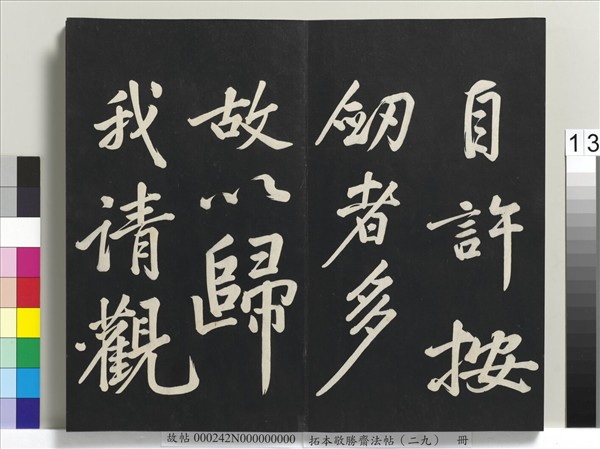 自許按
劒者多
故以歸
我请觀
13
故帖 000242N000000000 拓本敬勝齋法帖(二九) 冊